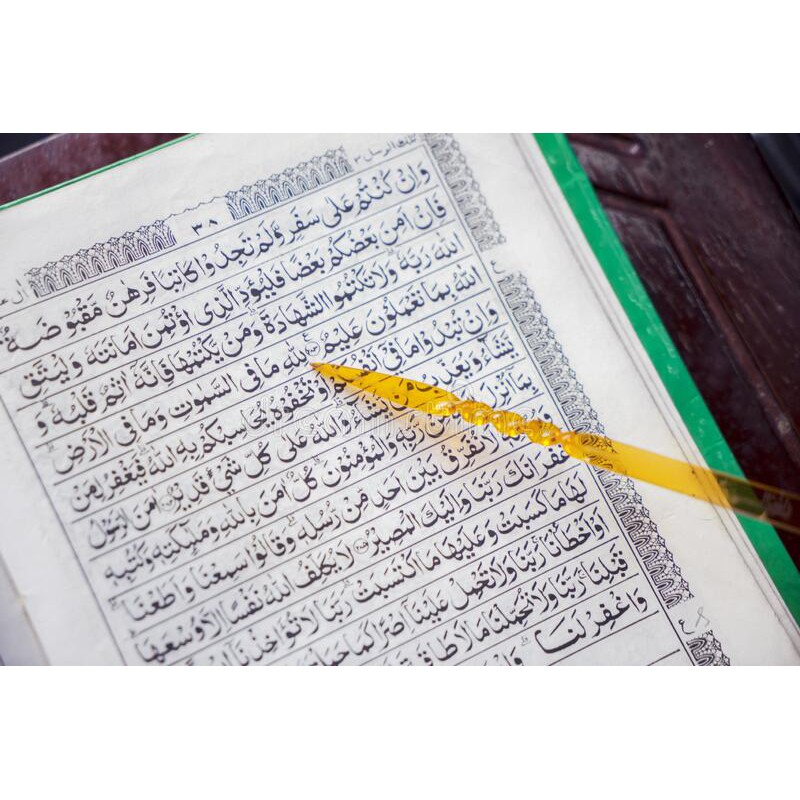 تلك الرسل ٣
٣٨
وَاِنْ كُنْتُمْ عَلٰى سَفَرٍ وَّلَمْ تَجِدُوْا كَاتِبًا فَرِهٰنٌ مَّقْبُوْضَةٌ
فَاِنْ اَمِنَ بَعْضُكُمْ بَعْضًا فَلْيُؤَدِّ الَّذِى اؤْتُمِنَ اَمَانَتَهٗ وَلْيَتَّقِ
اللّٰهَ رَبَّهٗ وَلَا تَكْتُمُوا الشَّهَادَةَ وَمَنْ يَّكْتُمْهَا فَاِنَّهٗ اٰثِمٌ قَلْبُهٗ وَ
اللّٰهُ بِمَا تَعْمَلُوْنَ عَلِيْمٌ لِلّٰهِ مَا فِى السَّمٰوٰتِ وَمَا فِى الْاَرْضِ
وَاِنْ تُبْدُوْا مَا فِىْ اَنْفُسِكُمْ اَوْ تُخْفُوْهُ يُحَاسِبْكُمْ بِهِ اللّٰهُ فَيَغْفِرُ لِمَنْ
يَّشَآءُ وَيُعَذِّبُ مَنْ يَّشَآءُ وَاللّٰهُ عَلٰى كُلِّ شَىْءٍ قَدِيْرٌ اٰمَنَ الرَّسُوْلُ
بِمَآ اُنْزِلَ رَّبِّهٖ وَالْمُؤْمِنُوْنَ كُلٌّ اٰمَنَ بِاللّٰهِ وَمَلٰٓئِكَتِهٖ وَكُتُبِهٖ
نُفَرِّقُ بَيْنَ اَحَدٍ مِّنْ رُّسُلِهٖ وَقَالُوْا سَمِعْنَا وَاَطَعْنَا
غُفْرَانَكَ رَبَّنَا وَاِلَيْكَ الْمَصِيْرُ لَا يُكَلِّفُ اللّٰهُ نَفْسًا اِلَّا وُسْعَهَا
لَهَا مَا كَسَبَتْ وَعَلَيْهَا مَا اكْتَسَبَتْ رَبَّنَا لَا تُؤَاخِذْنَآ
اَوْ اَخْطَاْنَا رَبَّنَا وَلَا تَحْمِلْ عَلَيْنَآ اِصْرًا كَمَا
قَبْلِنَا رَبَّنَا وَلَا تُحَمِّلْنَا مَا لَا طَاقَةَ
وَاغْفِرْ لَنَا